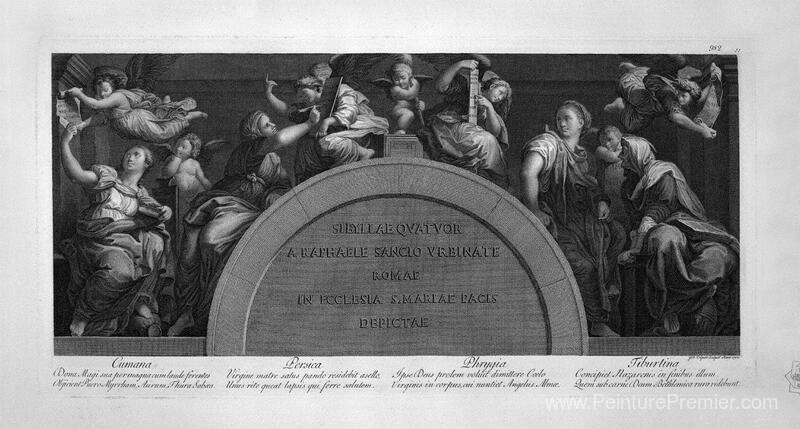 982
SIBYLLAE QVATVOR
A RAPHAELE SANCIO VRBINATE
ROMAE
IN ECCLESIA S. MARIAE PACIS
DEPICTAE
Cumana
Dona Magi sua per magna cum laude ferentes
Officient Puero Myrrham, Aurum, Thura Sabea.
Persica
Virgine matre satus pando residebit asello,
Unus rite queat lapsis qui ferre salutem.
Phrygia
Ipse Deus prolem voluit dimittere Coelo
Virginis in corpus, cui nuntiet Angelus Almae.
Tiburtina
Concipiet Nazarenis in finibus illum,
Quem sub carne Deum Bethlemica rura videbunt.
www.PeinturePremier.com